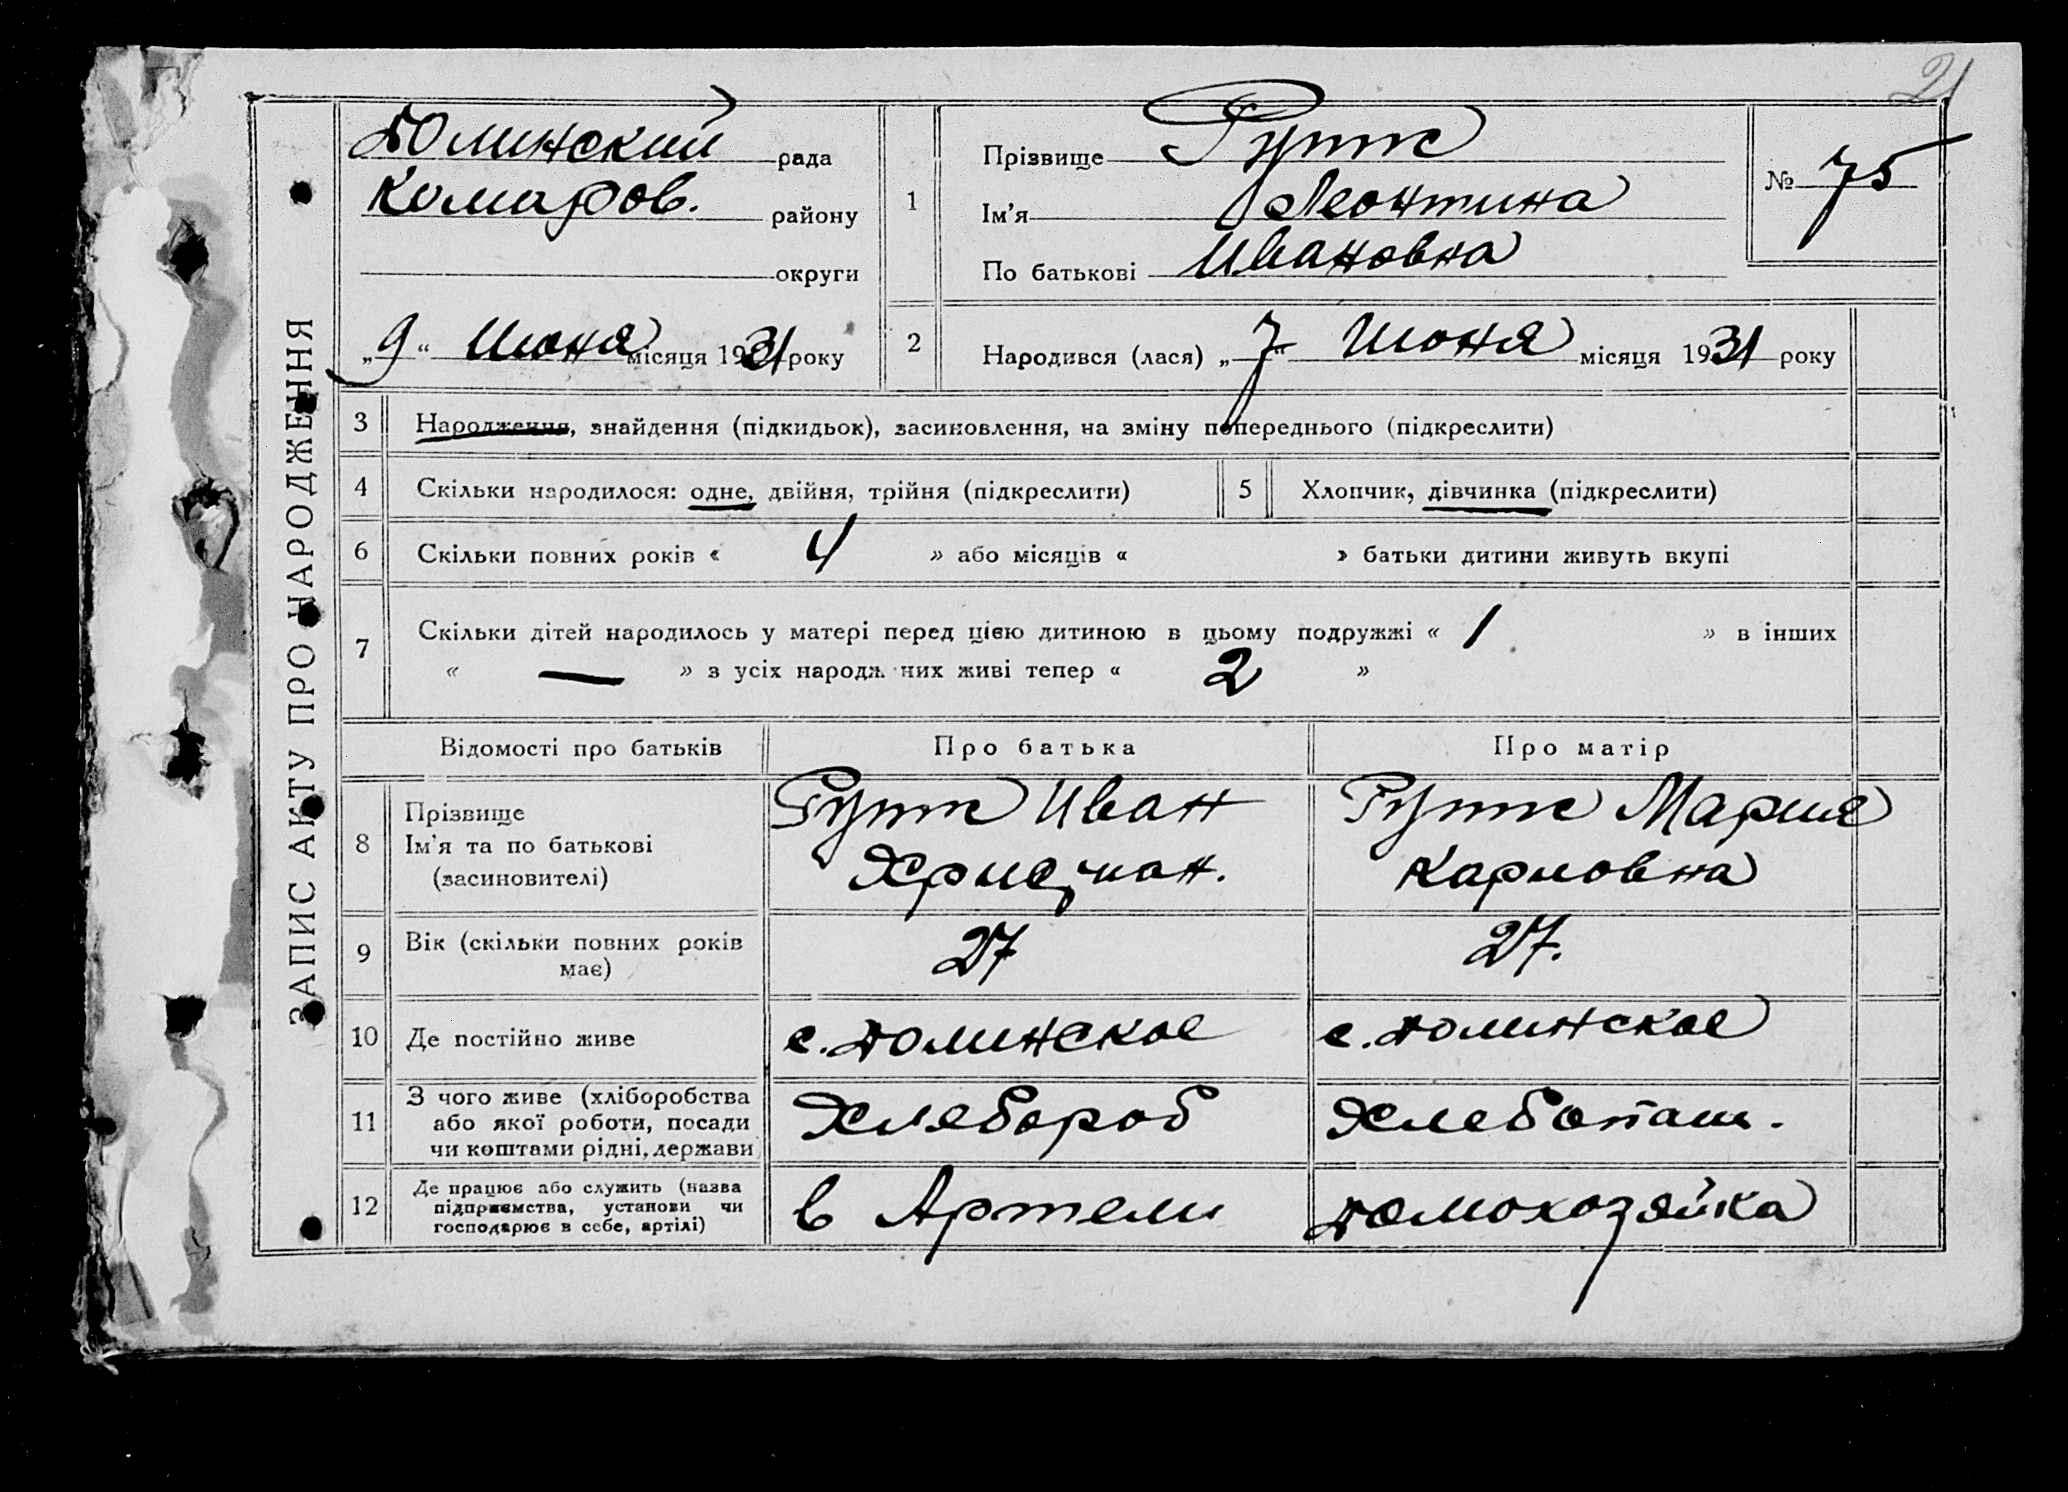 21
ЗАПИС АКТУ ПРО НАРОДЖЕННЯ
Долинский рада
Комаров. району
округи
„9“ Июня місяця 1931 року
1
Прізвище Рутт
Ім’я Леонтина
По батькові Ивановна
№ 75
2
Народився (лася) „7“ Июня місяця 1931 року
3 Народження, знайдення (підкидьок), засиновлення, на зміну попереднього (підкреслити)
4 Скільки народилося: одне, двійня, трійня (підкреслити)
5 Хлопчик, дівчинка (підкреслити)
6 Скільки повних років « 4 » або місяців « » батьки дитини живуть вкупі
7 Скільки дітей народилось у матері перед цією дитиною в цьому подружжі « 1 » в інших
« — » з усіх народж них живі тепер « 2 »
Відомості про батьків Про батька Про матір
8 Прізвище
Ім’я та по батькові
(засиновителі)
Рутт Иван
Христиан.
Рутт Мария
Карловна
9 Вік (скільки повних років
має)
27
27.
10 Де постійно живе
с. Долинское
с. Долинское
11 З чого живе (хліборобства
або якої роботи, посади
чи коштами рідні, держави
Хлебороб
Хлебопаш.
12 Де працює або служить (назва
підприємства, установи чи
господарює в себе, артілі)
в Артели
домохозяйка